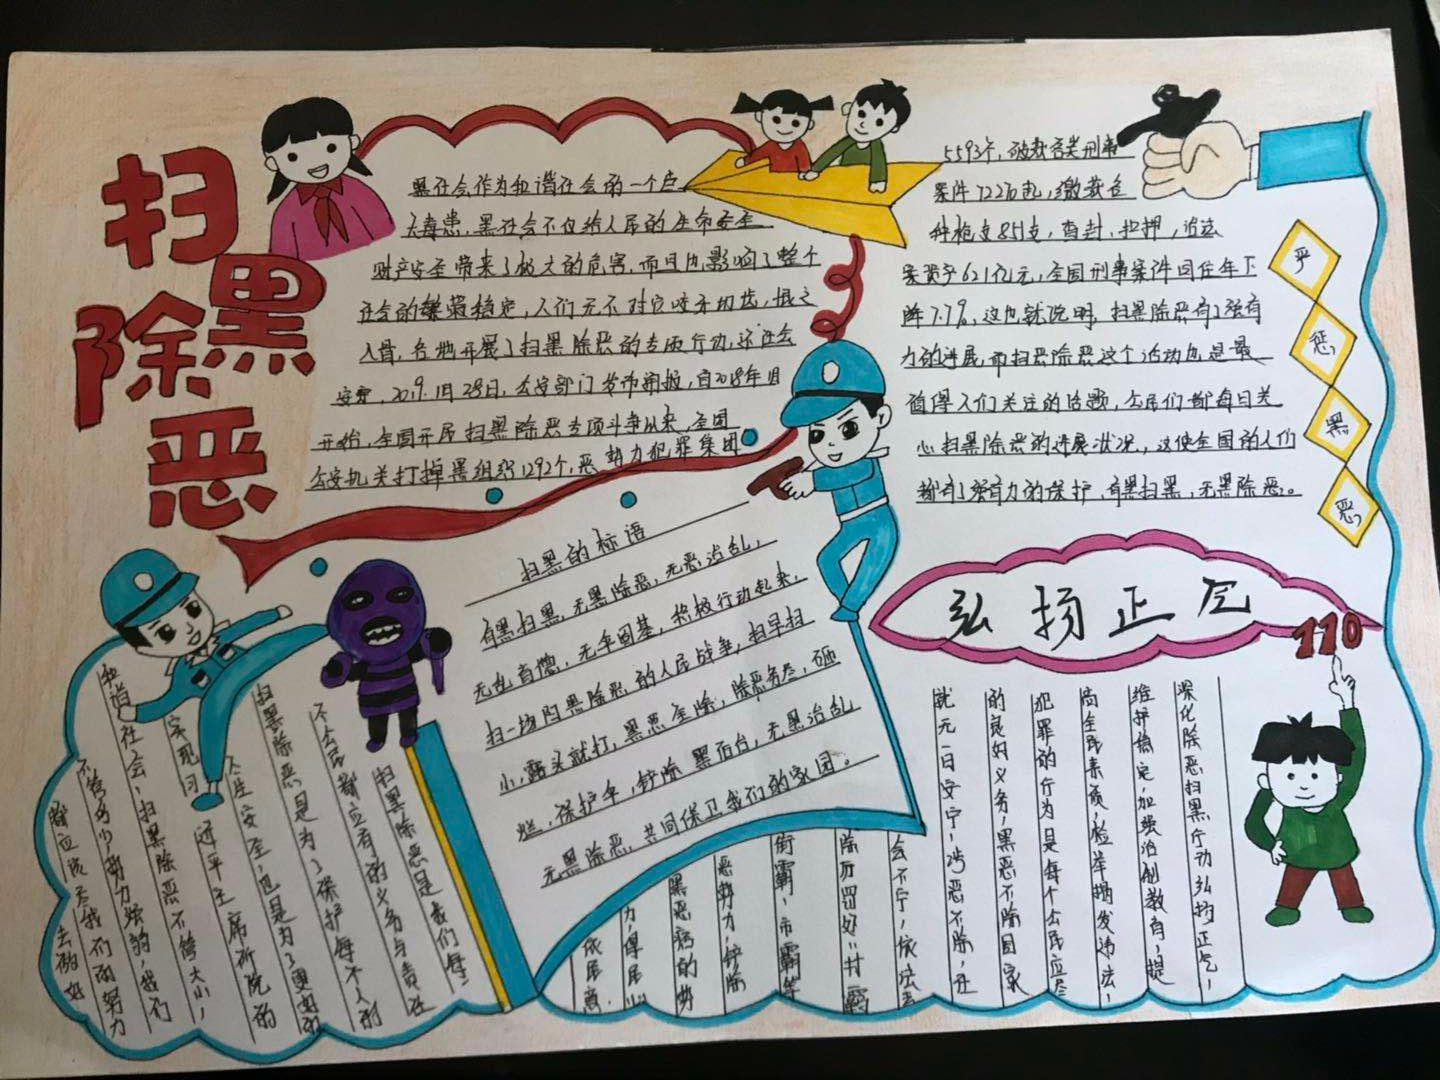 扫黑除恶
黑社会作为和谐社会的一个巨
大毒患,黑社会不仅给人民的生命安全
财产安全带来了极大的危害,而且也影响了整个
社会的繁荣稳定,人们无不对它咬牙切齿,恨之
入骨,各地开展了扫黑除恶的专项行动,还社会
安宁,2019.1月28日,公安部门发布通报,自2018年1月
开始,全国开展扫黑除恶专项斗争以来,全国
公安机关打掉黑组织1292个,恶势力犯罪集团
5593个,破获各类刑事
案件72270起,缴获各
种枪支851支,查封,扣押,冻结
案资产621亿元,全国刑事案件同比年下
降7.7%,这也就说明,扫黑除恶有了强有
力的进展,而扫恶除恶这个活动也是最
值得人们关注的话题,公民们都每日关
心扫黑除恶的进展状况,这使全国的人们
都有了强有力的保护,有黑扫黑,无黑除恶。
严惩黑恶
扫黑的标语
有黑扫黑,无黑除恶,无恶治乱,
无乱育德,无争固基,积极行动起来,
扫一场扫黑除恶的人民战争,扫早扫
小,露头就打,黑恶全除,除恶务尽,砸
烂,保护伞,铲除黑后台,无黑治乱
无黑除恶,共同保卫我们的家园。
弘扬正气
110
扫黑除恶是我们每
个公民都应有的义务与责任
扫黑除恶是为了保护每个人的
人生安全,也是为了更好的
实现习近平主席所说的
和谐社会,扫黑除恶不管大小,
不管多少,势力强的,我们
都应该尽我们的努力
去做好
深化除恶扫黑行动弘扬正气,
维护稳定,加强法制教育,提
高全民素质,检举揭发违法,
犯罪的行为是每个公民应尽
的良好义务,黑恶不除国家
就无一日安宁,涉恶不除,社
会不宁,依法去
除厉罚好"村霸
街霸,市霸等
恶势力,铲除
黑恶痞的势
力,得民心
依民意,